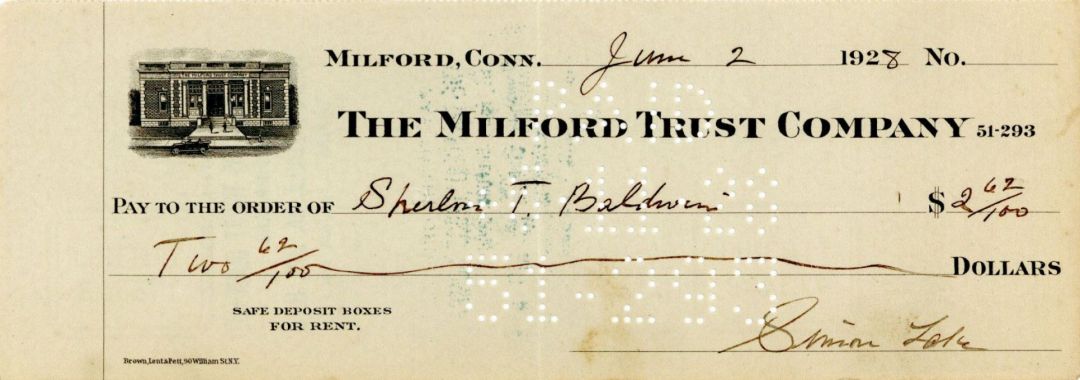 MILFORD, CONN. June 2 1928 No.
THE MILFORD TRUST COMPANY
THE MILFORD TRUST COMPANY 51-293
PAID
PAY TO THE ORDER OF T. Baldwin $2 62/100
Two 62/100 DOLLARS
51-293
SAFE DEPOSIT BOXES
FOR RENT.
Simon Lake
Brown, Lent & Pett, 90 William St. N.Y.